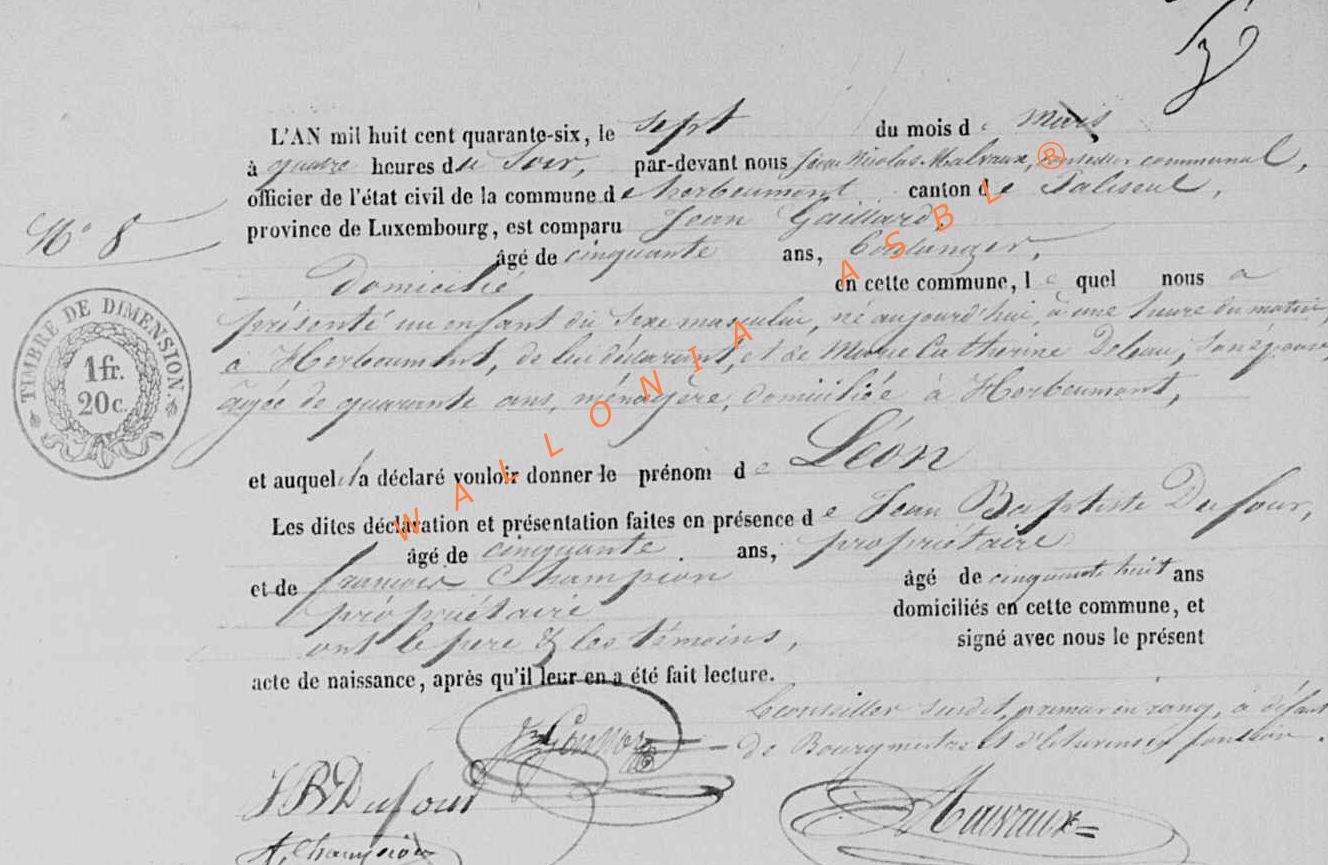 L'AN mil huit cent quarante-six, le sept du mois de Mars
à quatre heures du soir, par-devant nous Jean Nicolas Malvaux, conseiller communal,
officier de l'état civil de la commune de herbeumont canton de Paliseul,
N° 8
province de Luxembourg, est comparu Jean Gaillard,
âgé de cinquante ans, Boulanger,
Domicilié en cette commune, lequel nous a
présenté un enfant du sexe masculin, né aujourd'hui, à une heure du matin,
à Herbeumont, de lui déclarant, et de Marie Catherine son épouse,
âgée de quarante ans, ménagère, domiciliée à Herbeumont,
TIMBRE DE DIMENSION
1 fr.
20 c.
et auquel il a déclaré vouloir donner le prénom de Léon
Les dites déclaration et présentation faites en présence de Jean Baptiste Dufour,
âgé de cinquante ans, propriétaire
et de françois Champion âgé de cinquante huit ans
propriétaire domiciliés en cette commune, et
ont le père & les témoins, signé avec nous le présent
acte de naissance, après qu'il leur en a été fait lecture.
Le conseiller susdit, premier en rang, à défaut
de Bourgmestre et d'échevins en fonction.
JBDufour
Malvaux
f. Champion
WALLONIA ASBL ®